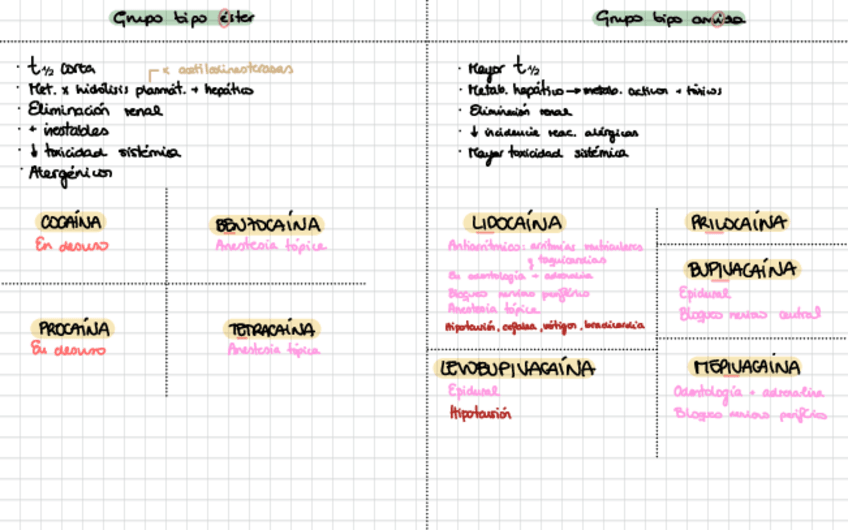 Grupo tipo éster
· t ½ corta
┌ x acetilcolinesterasas
· Met. x hidólisis plasmát. + hepático
· Eliminación renal
· + inestables
· ↓ toxicidad sistémica
· Alergénicos
COCAÍNA
En desuso
BENZOCAÍNA
Anestesia tópica
PROCAÍNA
En desuso
TETRACAÍNA
Anestesia tópica
Grupo tipo amida
· Mayor t ½
· Metab. hepático → metab. activos + tóxicos
· Eliminación renal
· ↓ incidencia reac. alérgicas
· Mayor toxicidad sistémica
LIDOCAÍNA
Antiarrítmico: arritmias ventriculares
y taquicardias
En odontología + adrenalina
Bloqueo nervioso periférico
Anestesia tópica
Hipotensión, cefalea, vértigos, bradicardia
PRILOCAÍNA
BUPIVACAÍNA
Epidural
Bloqueo nervioso central
LEVOBUPIVACAÍNA
Epidural
Hipotensión
MEPIVACAÍNA
Odontología + adrenalina
Bloqueo nervioso periférico